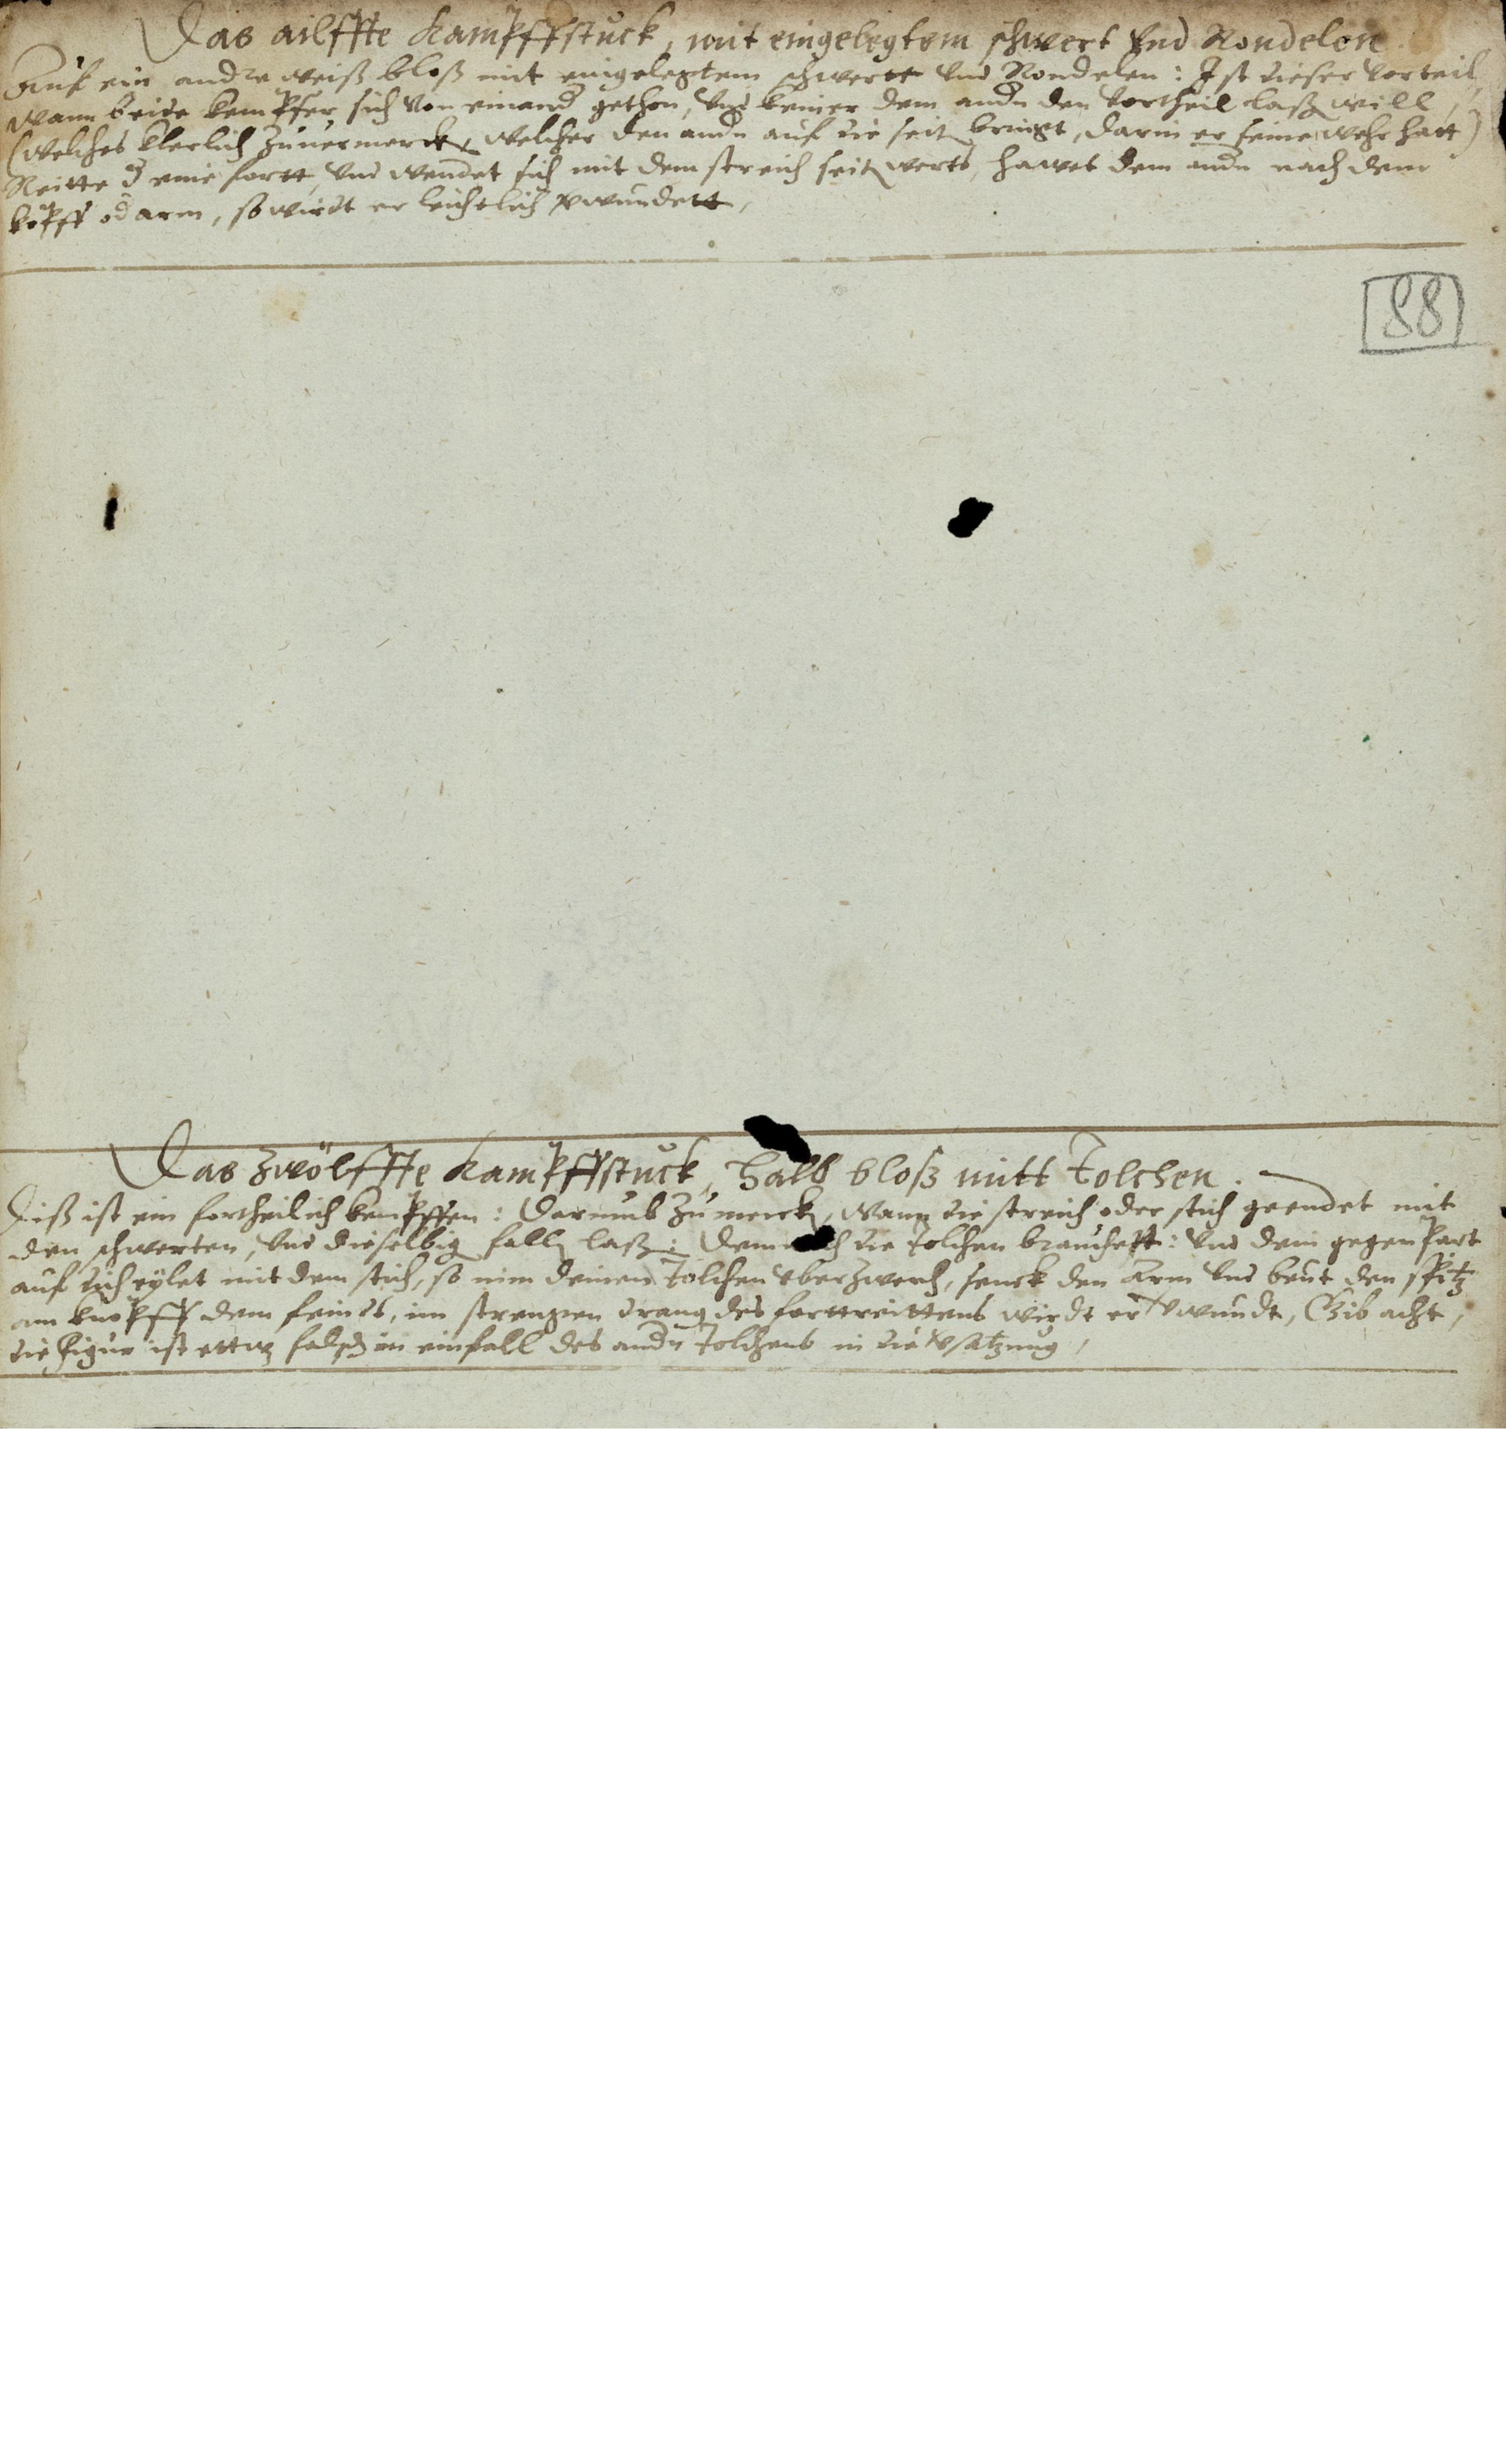 Das ailffte Kampffstuck, mit eingelegtem schwert vnd Rondelen
Auf ein andre weiß bloß mit eingelegtem schwertt vnd Rondelen: Ist dieser vorteil,
wann beide kempffer sich von einand gethon, vnd keiner dem andn den vortheil laß will,
(welches klerlich zuuermerck, welcher den andn auf die seit bringt, darin er seine wehr hatt)
Reitte d eine fortt, vnd wendet sich mit dem streich seitwerts, hawet dem andn nach dem
kopff od arm, so wirdt er leichtlich vwundett,
88
Das zwölffte Kampffstuck, halb bloß mitt Tolchen.
Diß ist ein fortheilich kempffen: Darumb zu merck, wann die streich oder stich geendet mit
den schwerten, vnd dieselbig fall laß: dem die Tolchen braucheft: vnd dein gegenpart
auf dich eylet mit dem stich, so nim deinen Tolchen vberzwerch, senck den Arm vnd beut den spitz
am knopff dem feindt, im strengen drang des forttreittens wirdt er vwundt, Gib acht,
die figur ist ettw falsch im einfall des andn Tolchens in die vsatzung,